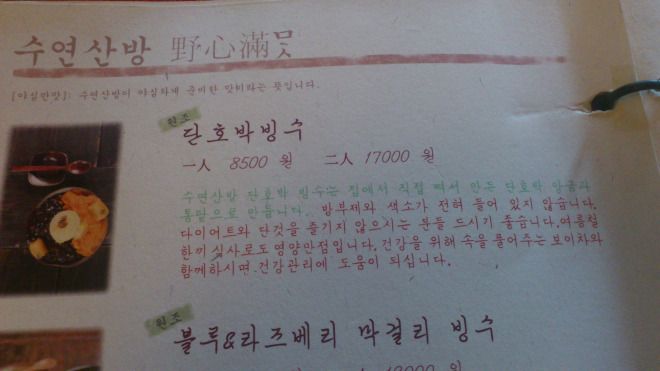 수연산방 野心滿맛
[야심만맛]: 수연산방이 야심차게 준비한 맛이라는 뜻입니다.
원조
단호박빙수
一人 8500 원 二人 17000 원
수연산방 단호박 빙수는 집에서 직접 쪄서 만든 단호박 앙금과
통팥으로 만듭니다. 방부제와 색소가 전혀 들어 있지 않습니다.
다이어트와 단것을 즐기지 않으시는 분들 드시기 좋습니다.여름철
한끼 식사로도 영양만점입니다.건강을 위해 속을 풀어주는 보이차와
함께하시면.건강관리에 도움이 되십니다.
원조
블루&라즈베리 막걸리 빙수